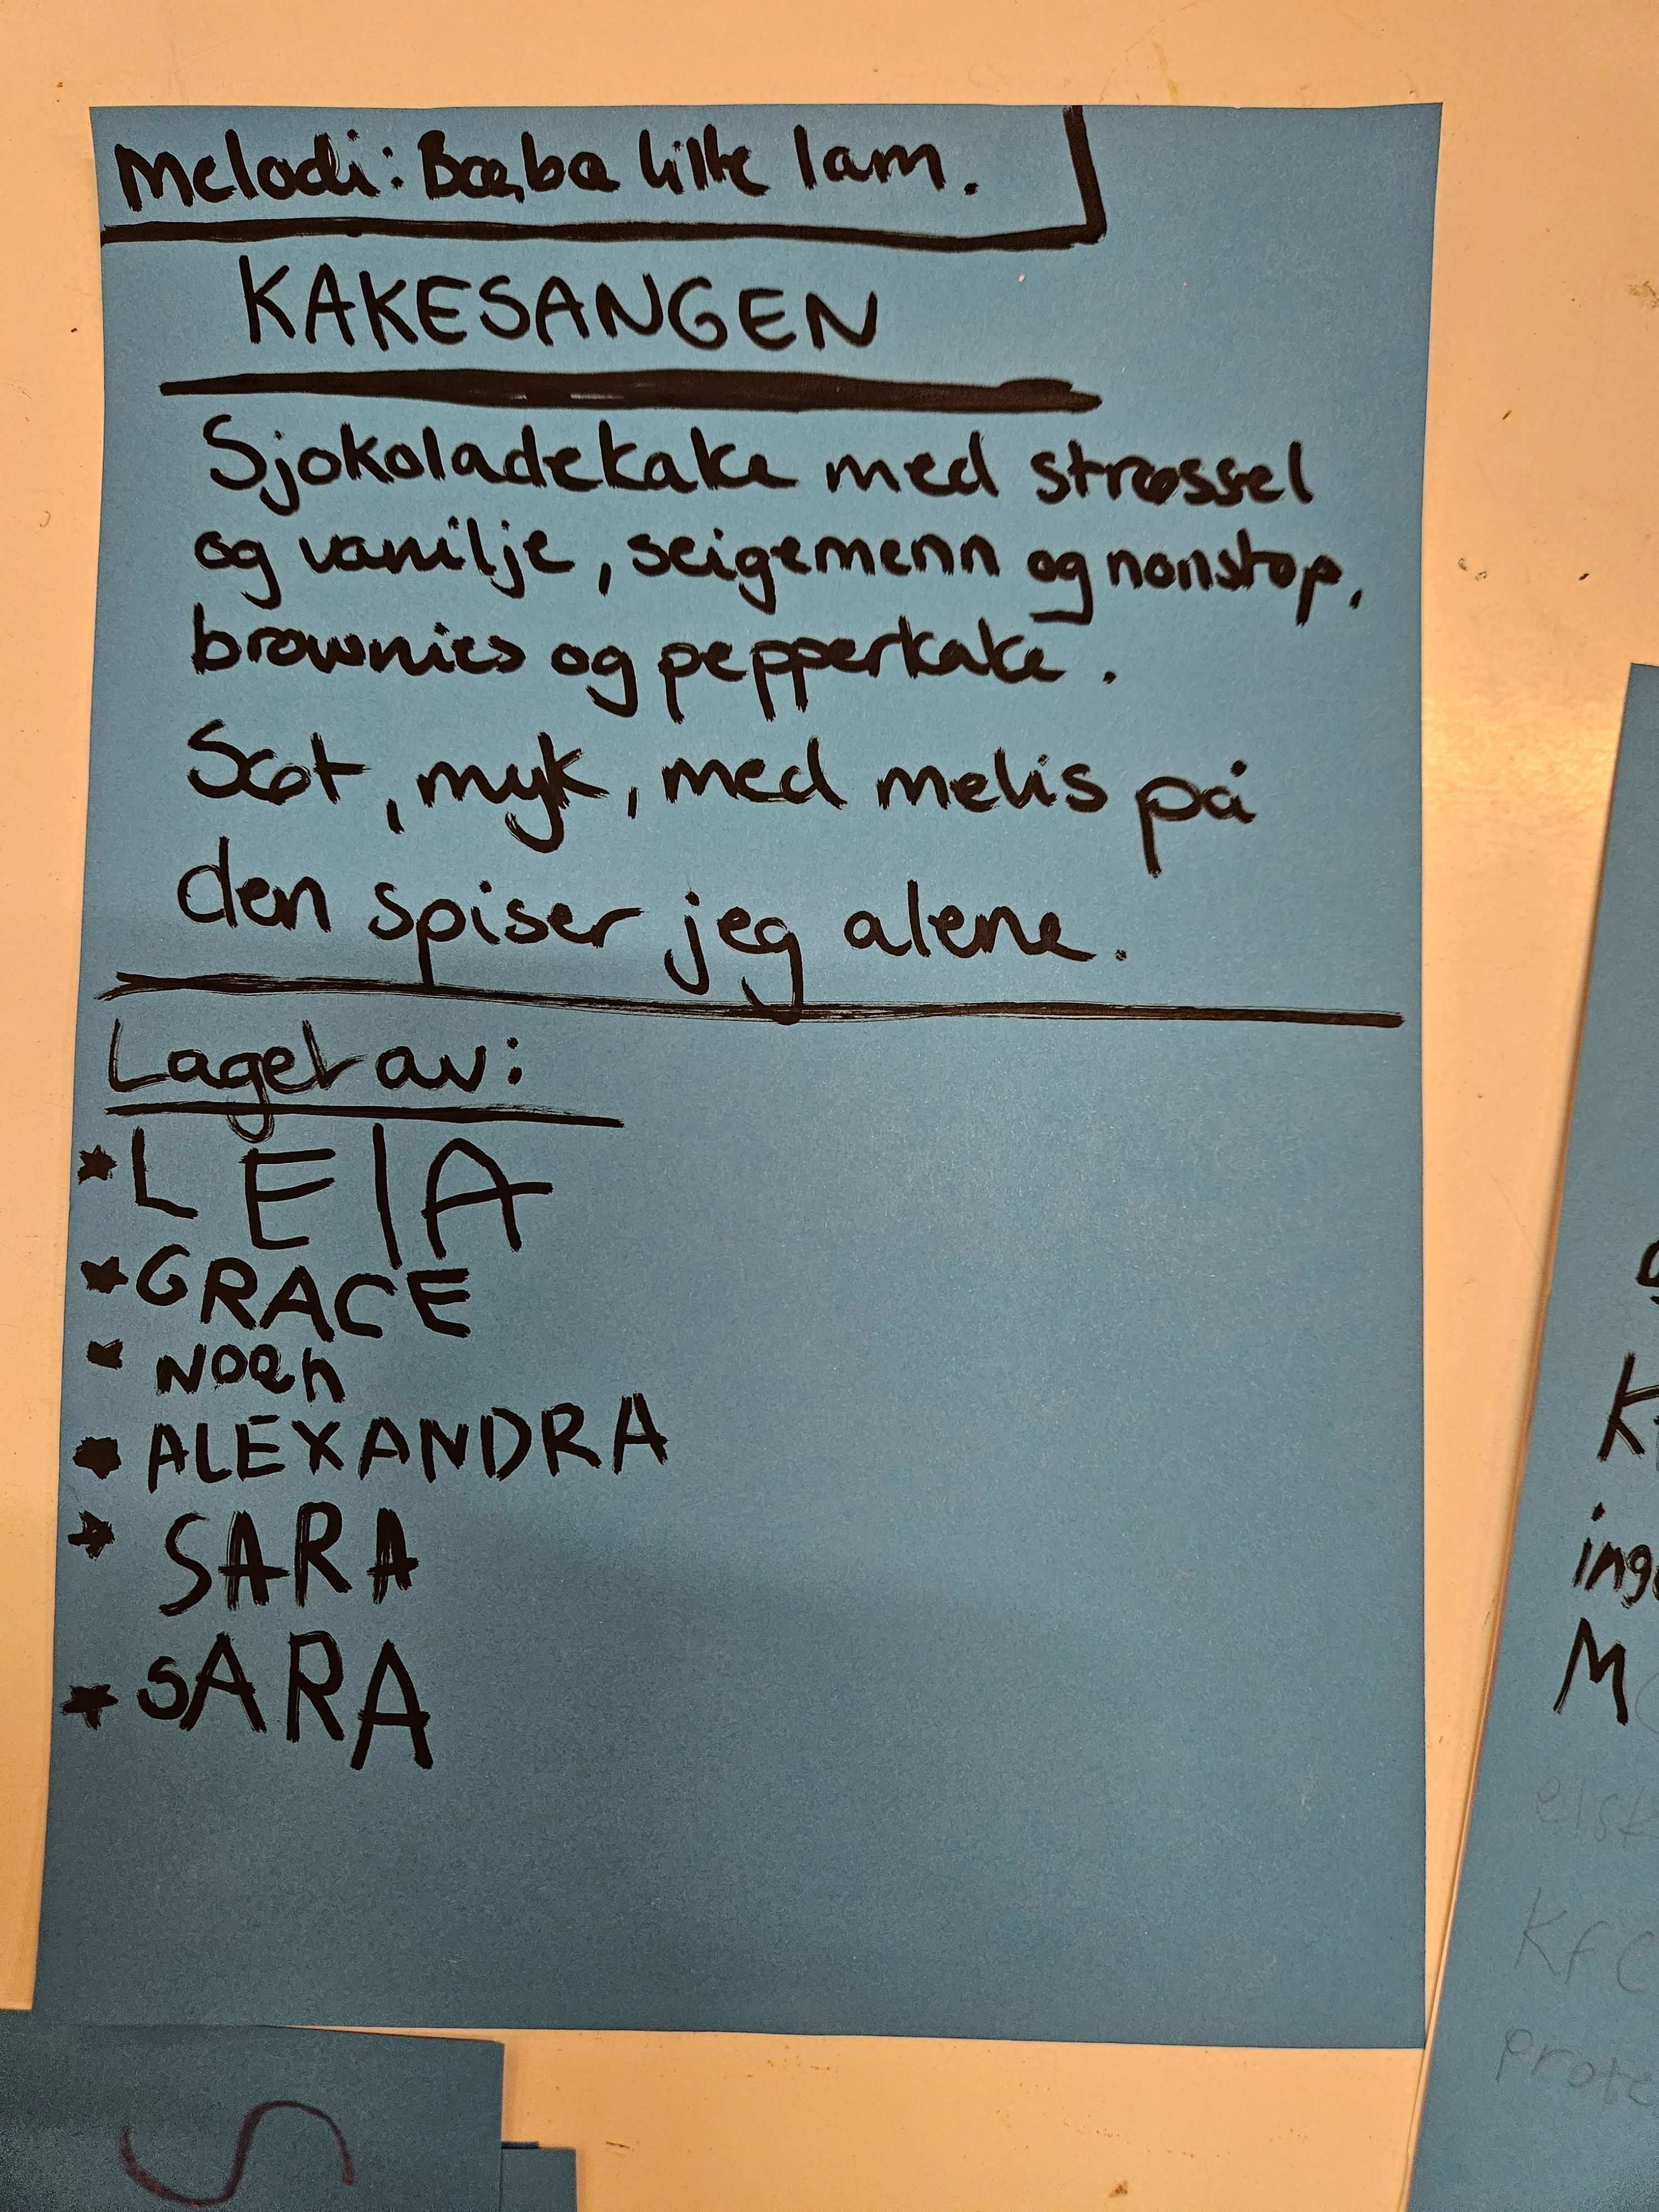 Melodi: Bæ,bæ lille lam.
KAKESANGEN
Sjokoladekake med strøssel
og vanilje, seigemenn og nonstop,
brownies og pepperkake.
Søt, myk, med melis på
den spiser jeg alene.
Laget av:
LEIA
GRACE
Noah
ALEXANDRA
SARA
SARA
K
ing
M
elsk
KFC
prote
S